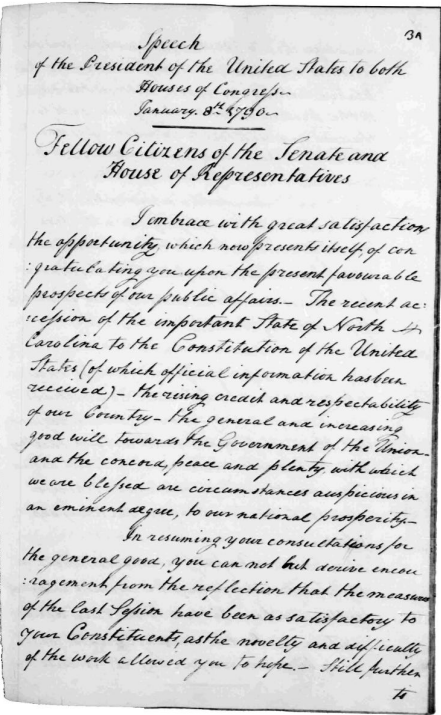 3A
Speech
of the President of the United States to both
Houses of Congress
January. 8th 1790
Fellow Citizens of the Senate and
House of Representatives
I embrace with great satisfaction
the opportunity, which now presents itself, of con
:gratulating you upon the present favourable
prospects of our public affairs. — The recent ac:
:cession of the important State of North
Carolina to the Constitution of the United
States (of which official information has been
received) — the rising credit and respectability
of our Country — the general and increasing
good will towards the Government of the Union —
and the concord, peace and plenty, with which
we are blessed are circumstances auspicious in
an eminent degree, to our national prosperity —
In resuming your consultations for
the general good, you can not but derive encou
:ragement from the reflection that the measures
of the last Session have been as satisfactory to
your Constituents, as the novelty and difficulty
of the work allowed you to hope. — Still further
to